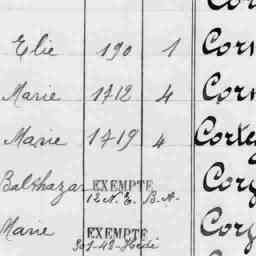 Elie 190 1 Corn
Marie 1712 4 Corn
Marie 1719 4 Cortey
Balthazar EXEMPTE Cory
12 N. E. B.A.
Marie EXEMPTE Cory